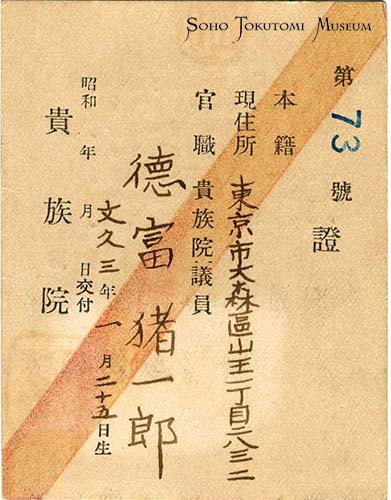 SOHO TOKUTOMI MUSEUM
第73號
證
本籍
現住所 東京市大森區山王一丁目二八三二
官職 貴族院議員
德富猪一郎
文久三年一月二十五日生
昭和 年 月 日交付
貴族院